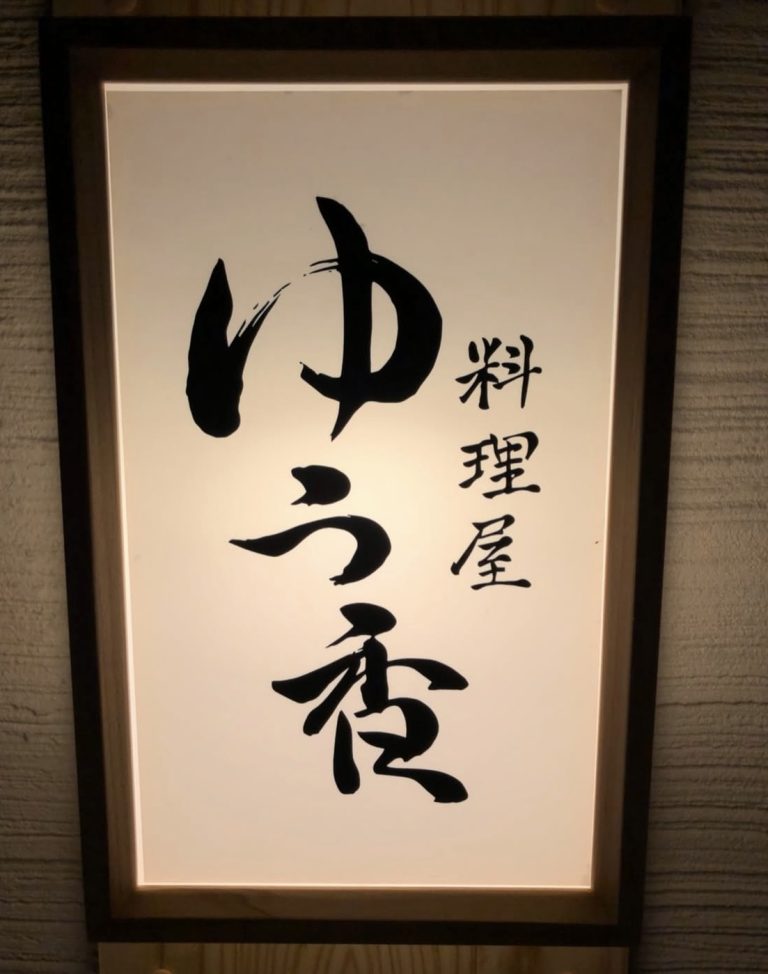 料理屋
ゆう香